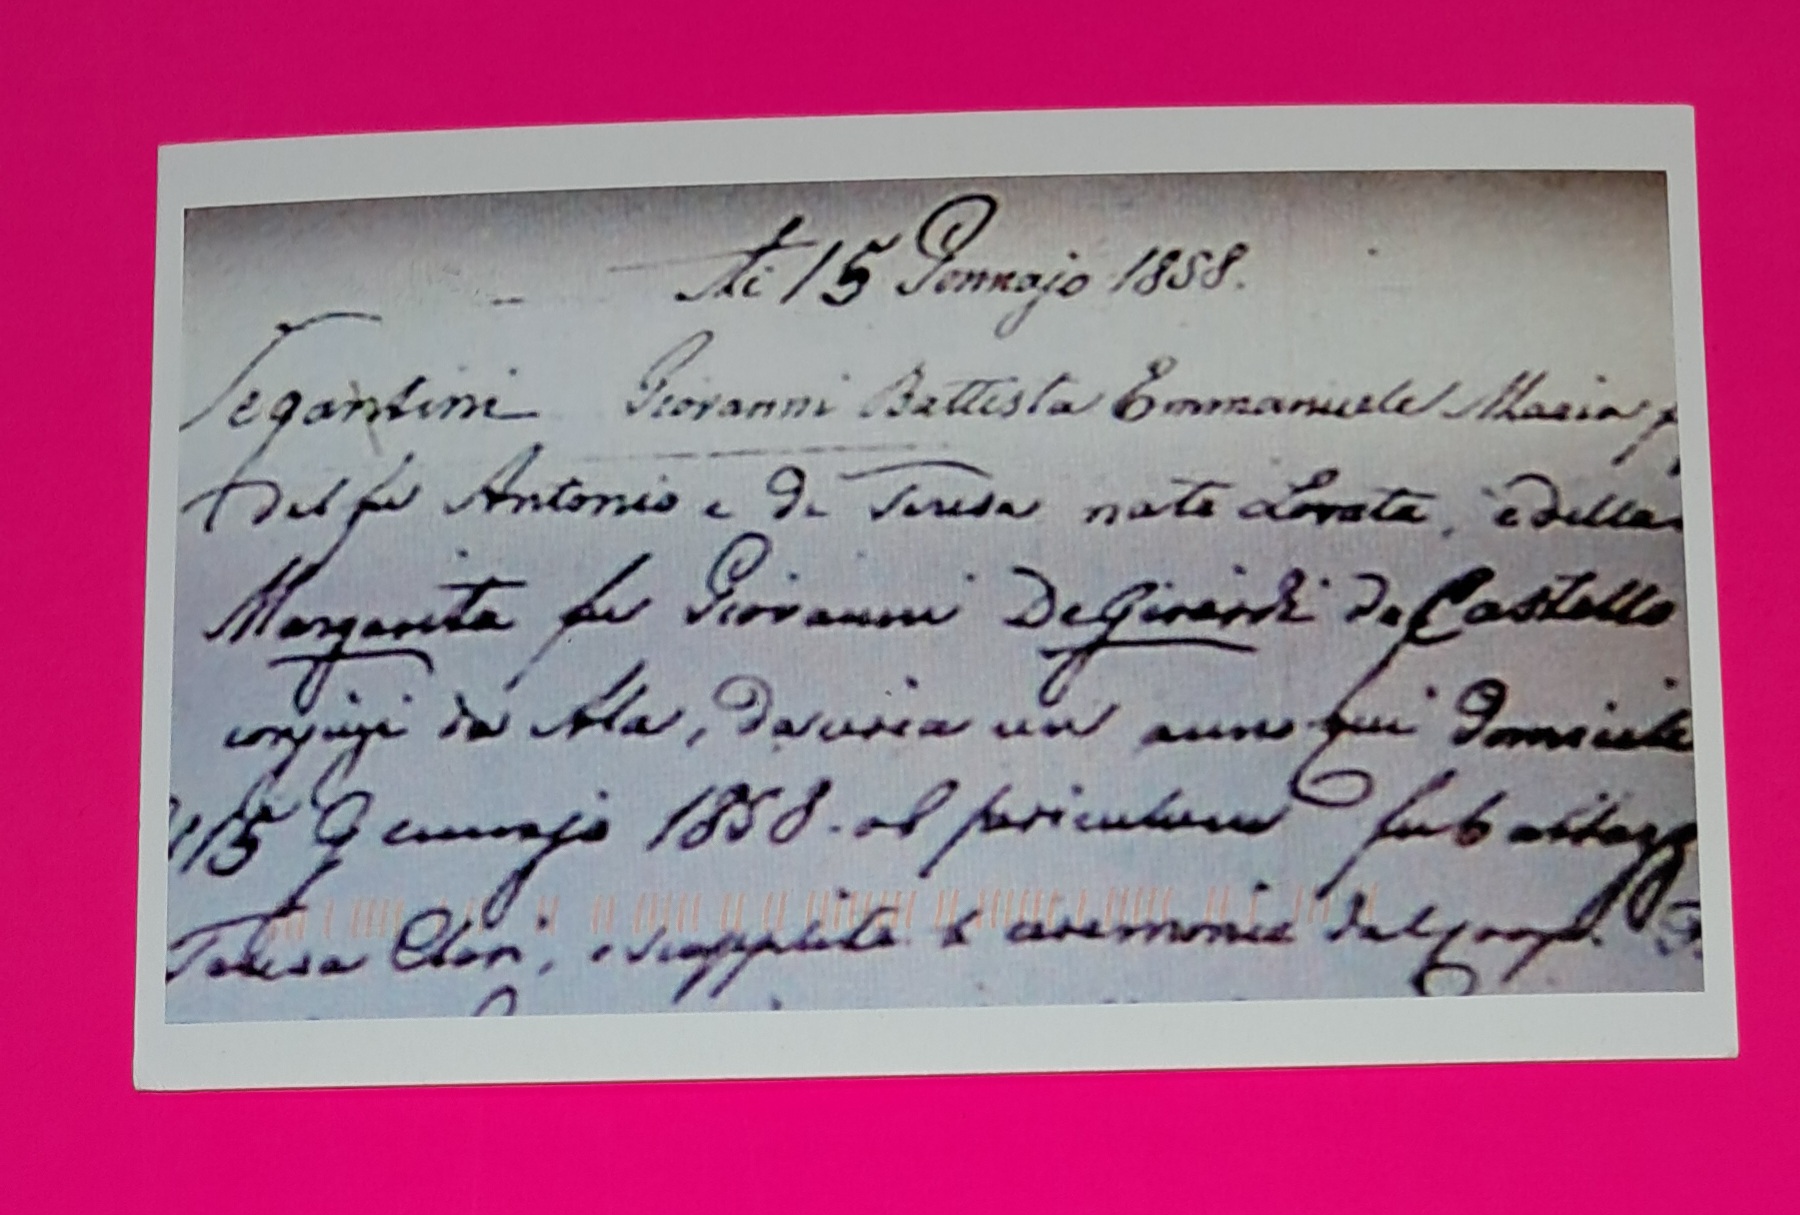 Li 15 Gennajo 1858.
Segantini Giovanni Battista Emmanuele Maria
del fu Antonio e di Teresa nata Lorata, e della
Margarita fu Giovanni DeGirardi da Castello
conjugi da Ala, da circa un anno qui domicile
15 Gennajo 1858. ob periculum fu battezz
Teresa Clari, e supplite le ceremonie dal prop.